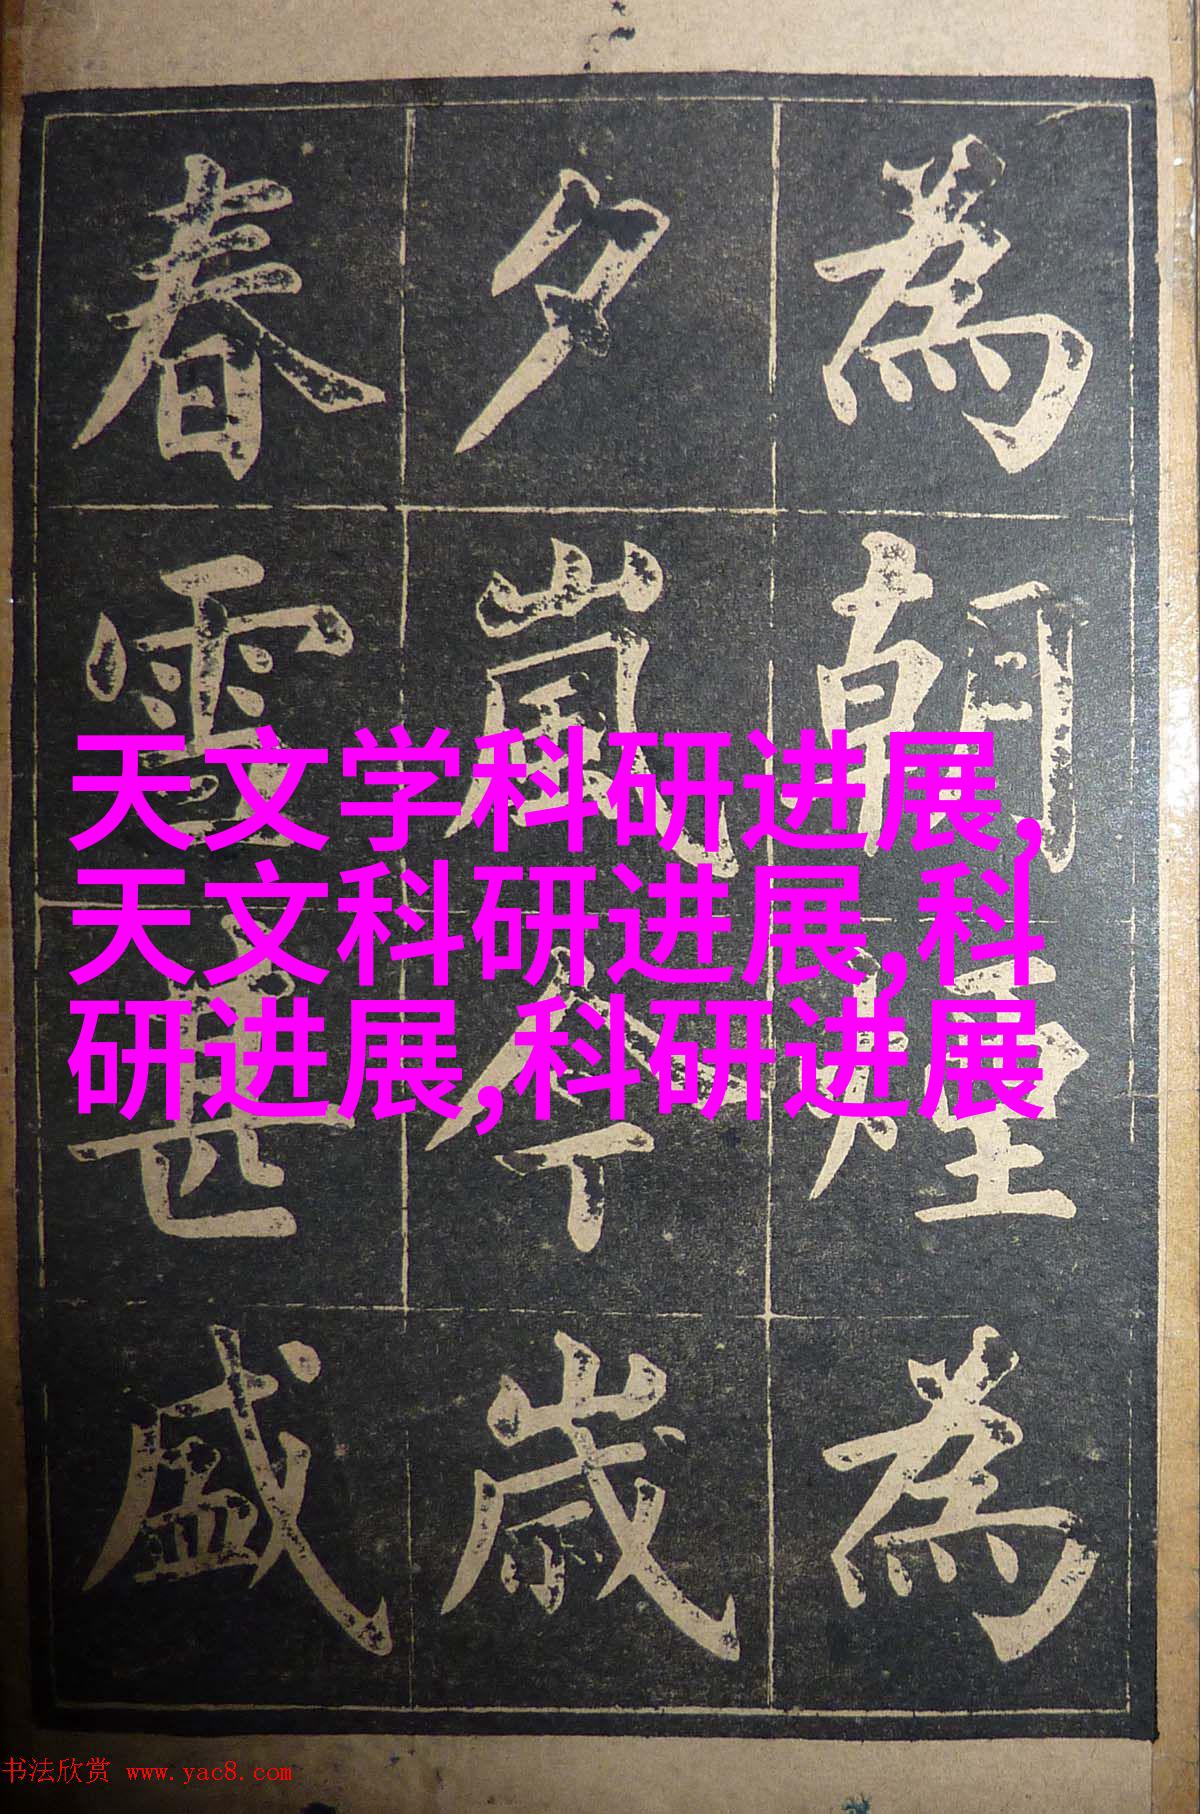 為朝煙為
夕嵐今歲
春雪甚盛
天文学科研进展,
天文科研进展,科
研进展,科研进展
书法欣赏 www.yac8.com